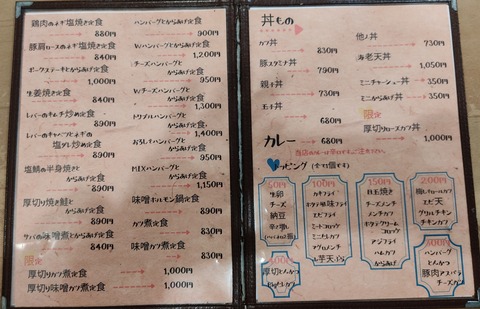 鶏肉のネギ塩焼き定食
880円
豚肩ロースのネギ塩焼き定食
840円
ポークステーキとからあげ定食
1,000円
生姜焼き定食
840円
レバーのキムチ炒め定食
890円
レバーのキャベツとネギの
塩ダレ炒め定食
890円
塩鯖の半身焼きと
からあげ定食
890円
厚切り焼き鮭と
からあげ定食
890円
サバの味噌煮とからあげ定食
840円
限定
厚切りカツ煮定食
1,000円
厚切り味噌カツ煮定食
1,000円
ハンバーグとからあげ定食
900円
Wハンバーグとからあげ定食
1,200円
チーズハンバーグと
からあげ定食
950円
Wチーズハンバーグと
からあげ定食
1,300円
トリプルハンバーグと
からあげ定食
1,400円
おろしハンバーグと
からあげ定食
950円
MEXハンバーグと
からあげ定食
1,150円
味噌ホルモン鍋定食
890円
カツ煮定食
830円
味噌カツ煮定食
830円
丼もの
カツ丼
830円
豚スタミナ丼
790円
親子丼
730円
玉子丼
680円
カレー
680円
他人丼
730円
海老天丼
1,050円
ミニチャーシュー丼
350円
ミニからあげ丼
350円
限定
厚切りロースカツ丼
1,000円
トッピング (全て1個です)
50円
生卵
チーズ
納豆
100円
カキフライ
エビフライ
ミートコロッケ
ミニチキンカツ
アグロメンチ
150円
目玉焼き
チーズメンチ
メンチカツ
アジフライ
ハムカツ
からあげ
200円
エビ天
グリルチキン
チキンカツ
300円
ハンバーグ
とんかつ
豚肉アスパラ
チーズカツ